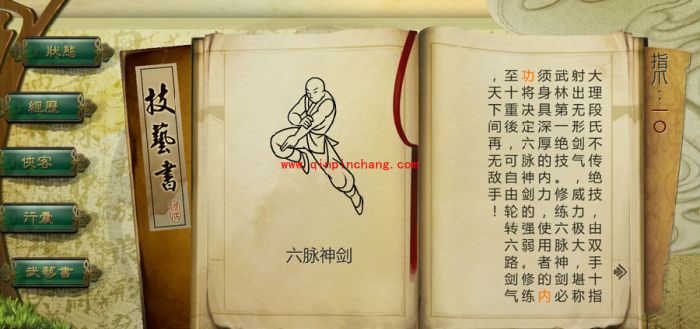 狀態
經歷
俠客
行囊
武藝書
技藝書
六脉神剑
www.qinpinchang.com
指爪：一〇
大理段氏不传绝技，由双手十指
射出无形剑气，威力极大，堪称
武林第一绝技。修练六脉神剑必
须身具深厚的内力，使用者的内
功将决定六脉神剑的强弱。修练
至十重後，可自由轮转六路剑气
，天下间再无敌手！